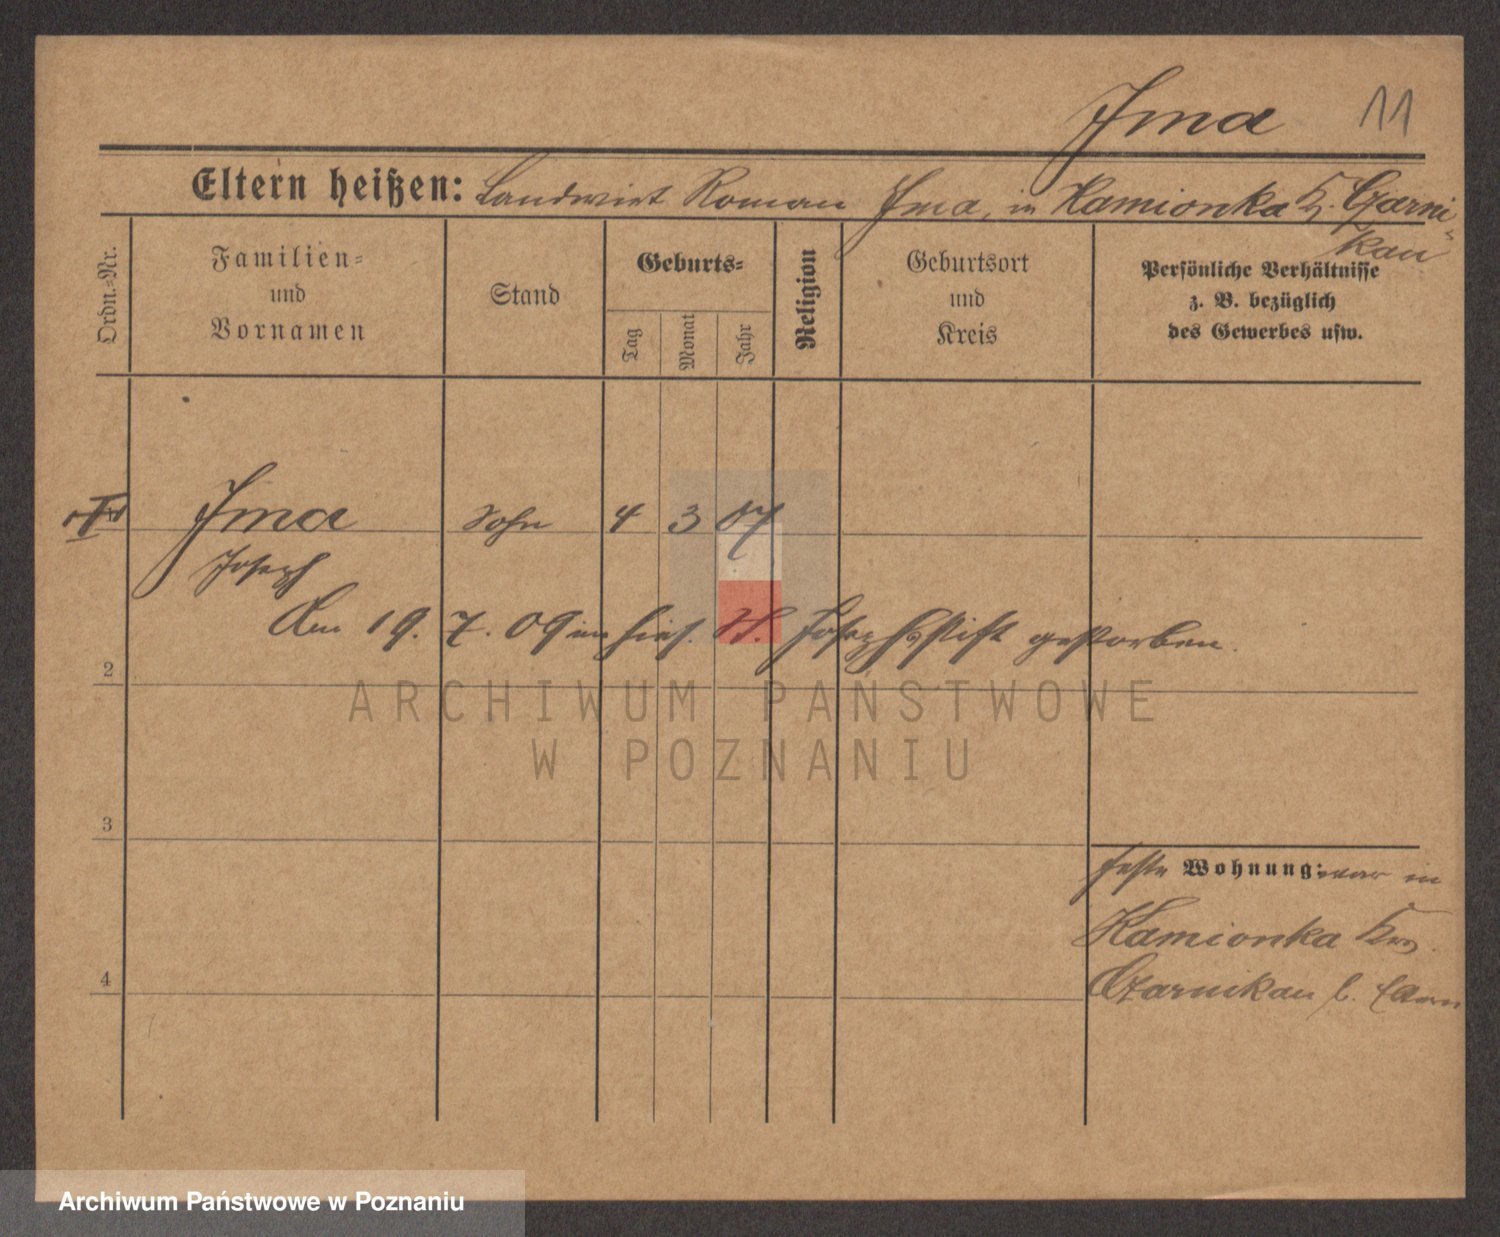 Jma 11
Eltern heißen: Landwirt Roman Jma, in Kamionka K. Czarni-
kau
Ordn.-Nr.
Familien-
und
Vornamen
Stand
Geburts-
Tag
Monat
Jahr
Religion
Geburtsort
und
Kreis
Persönliche Verhältnisse
z. B. bezüglich
des Gewerbes usw.
Jma Sohn 4 3 07
Joseph
Am 19. 7. 09 im hies. St. Josephsstift gestorben.
2
ARCHIWUM PAŃSTWOWE
W POZNANIU
3
feste Wohnung: war in
Kamionka Krs.
4
Czarnikau b.
Archiwum Państwowe w Poznaniu